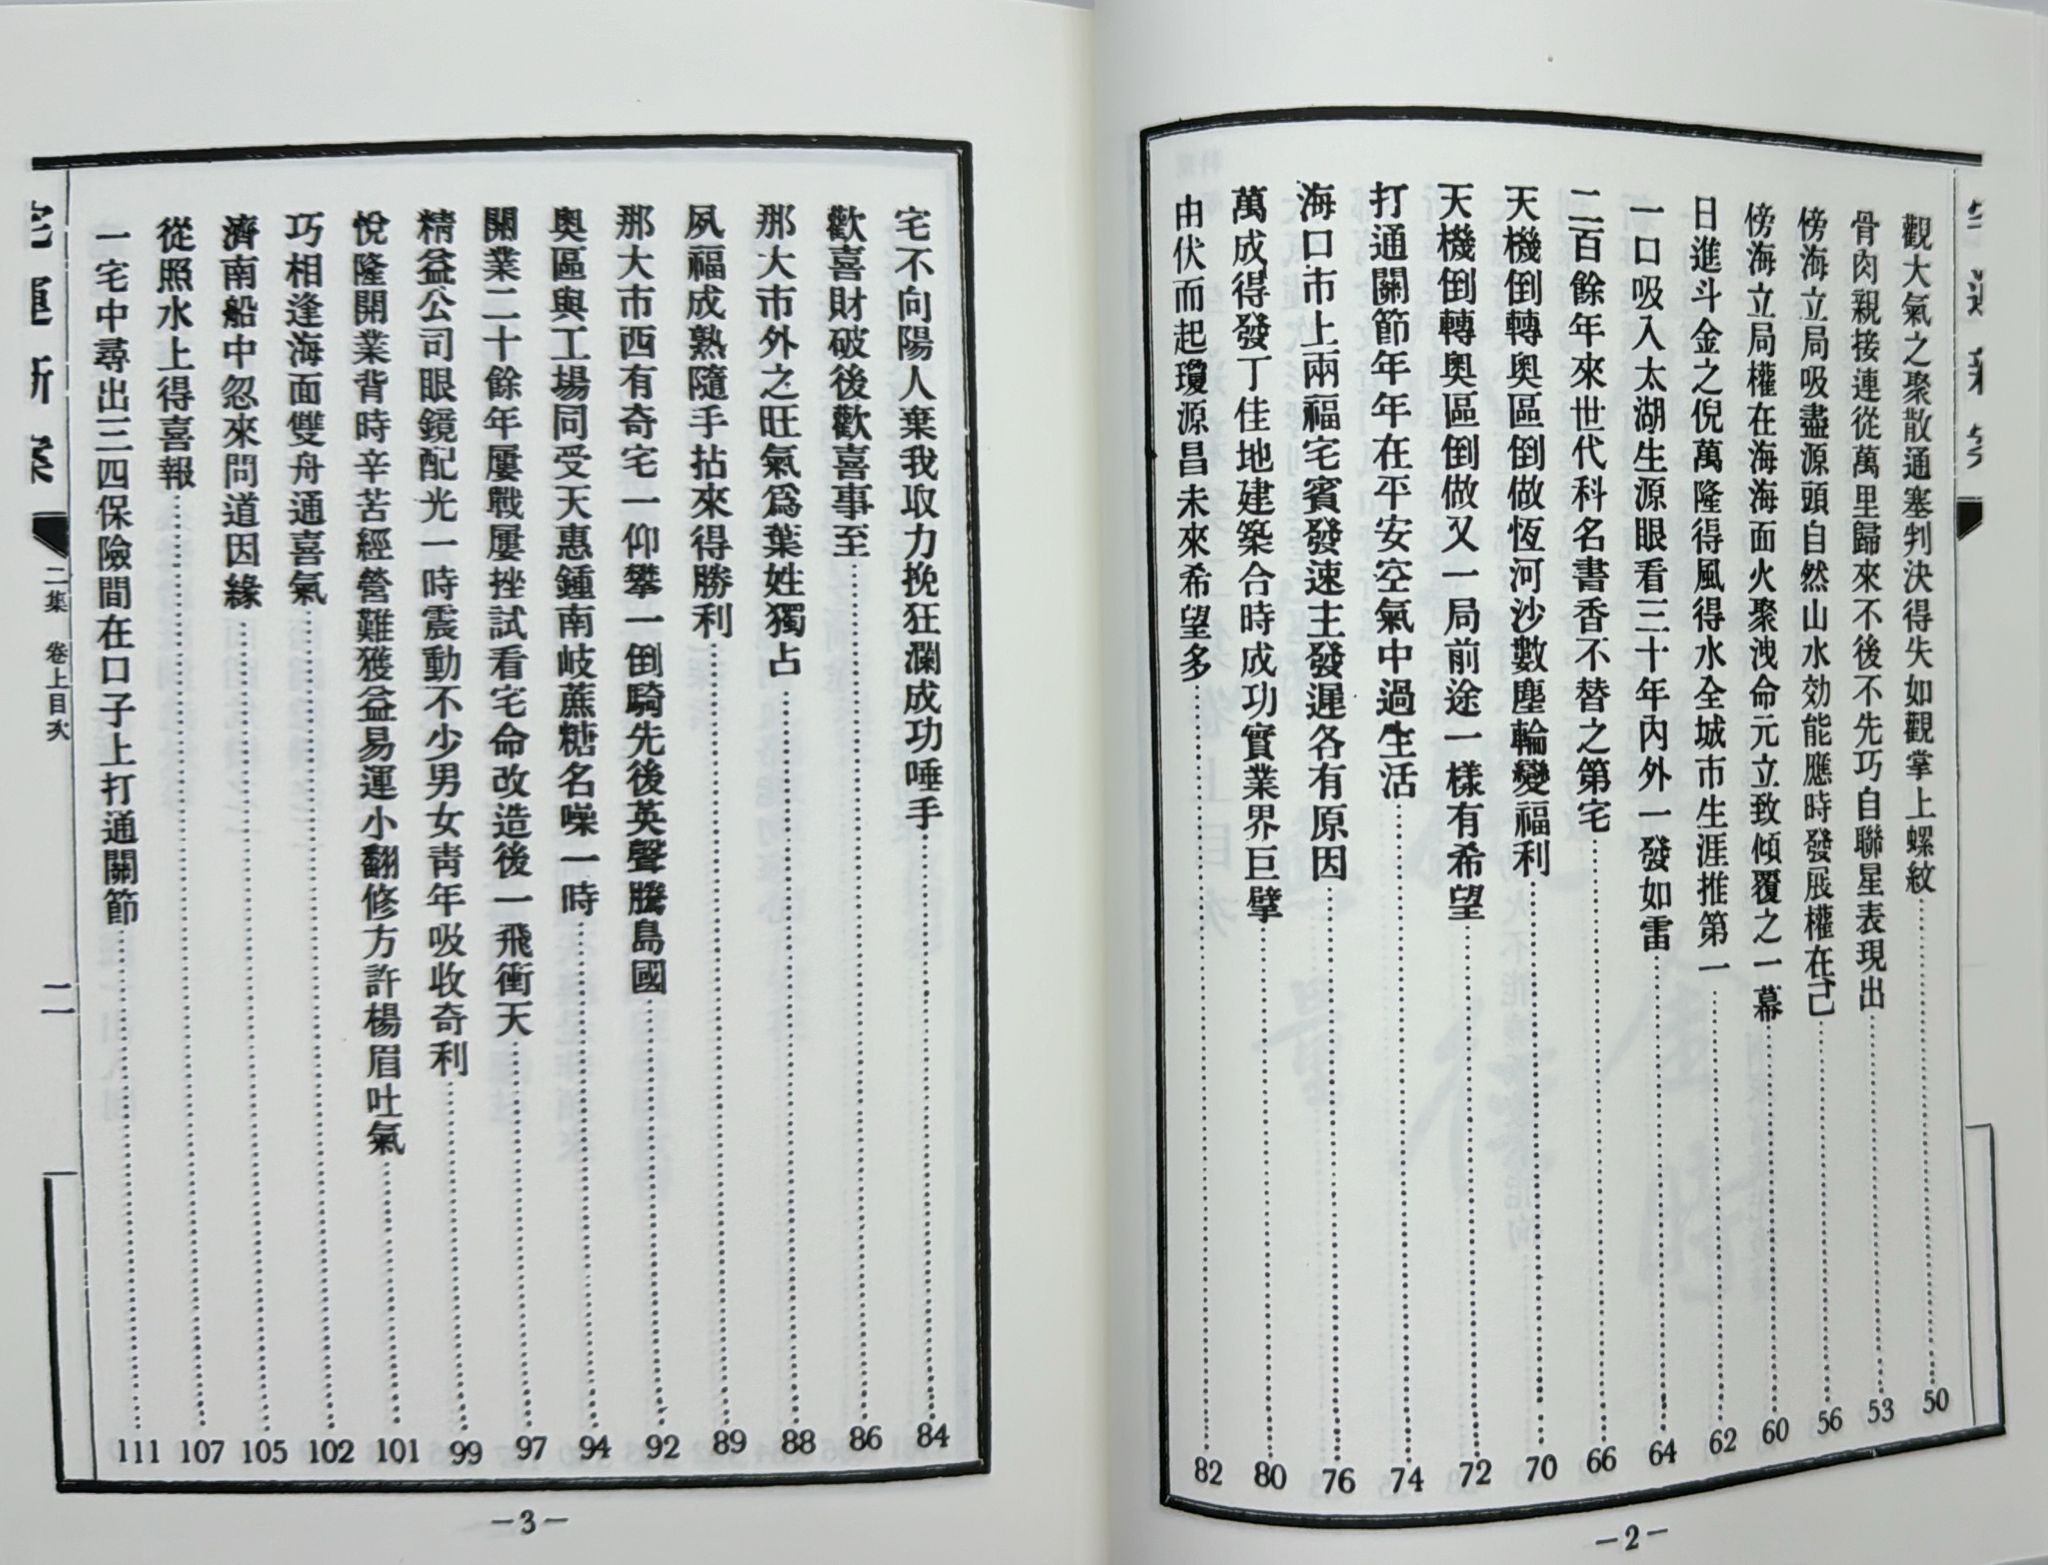 宅運新案
觀大氣之聚散通塞判決得失如觀掌上螺紋………50
骨肉親接連從萬里歸來不後不先巧自聯星表現出………53
傍海立局吸盡源頭自然山水効能應時發展權在己………56
傍海立局權在海海面火聚洩命元立致傾覆之一幕………60
日進斗金之倪萬隆得風得水全城市生涯推第一………62
一口吸入太湖生源眼看三十年內外一發如雷………64
二百餘年來世代科名書香不替之第宅………66
天機倒轉奧區倒做恆河沙數塵輪變福利………70
天機倒轉奧區倒做又一局前途一樣有希望………72
打通關節年年在平安空氣中過生活………74
海口市上兩福宅賓發速主發遲各有原因………76
萬成得發丁佳地建築合時成功實業界巨擘………80
由伏而起瓊源昌未來希望多………82
—2—
宅不向陽人棄我取力挽狂瀾成功唾手………84
歡喜財破後歡喜事至………86
那大市外之旺氣爲葉姓獨占………88
夙福成熟隨手拈來得勝利………89
那大市西有奇宅一仰攀一倒騎先後英聲騰島國………92
奧區與工場同受天惠鍾南岐蔗糖名噪一時………94
開業二十餘年屢戰屢挫試看宅命改造後一飛衝天………97
精益公司眼鏡配光一時震動不少男女靑年吸收奇利………99
悅隆開業背時辛苦經營難獲益易運小翻修方許楊眉吐氣………101
巧相逢海面雙舟通喜氣………102
濟南船中忽來問道因緣………105
從照水上得喜報………107
一宅中尋出三四保險間在口子上打通關節………111
宅運新案
二集 卷上目次
二
—3—